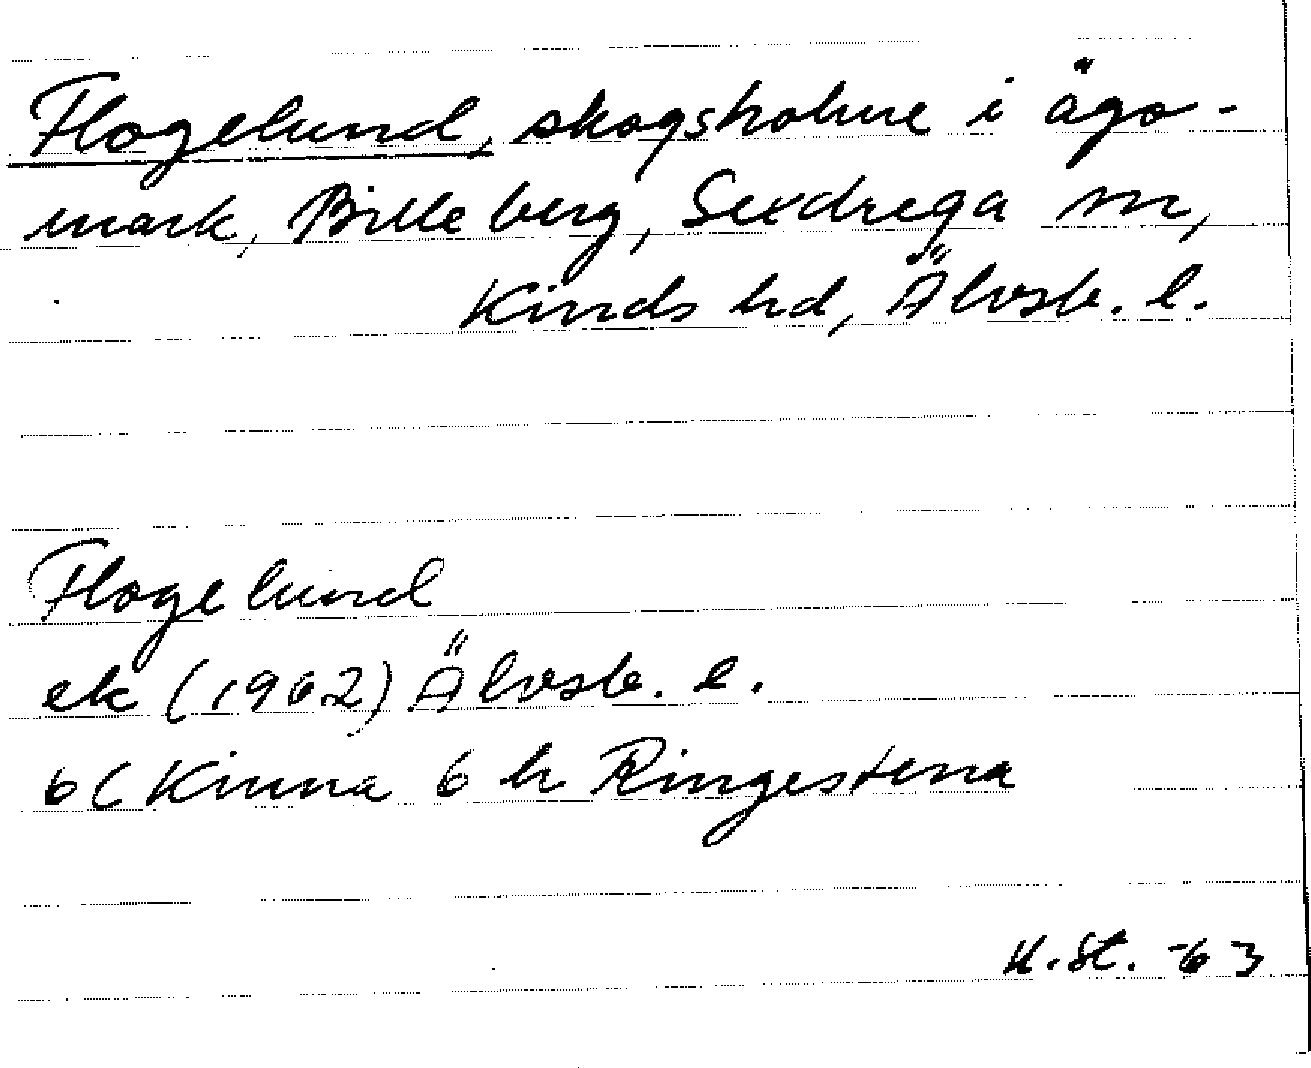 Flogelund, skogsholme i ägo-
mark, Billeberg, Sexdrega sn,
Kinds hd, Älvsb. l.
Flogelund
ek (1962) Älvsb. l.
6C Kinna 6 h Ringestena
K.St. -63